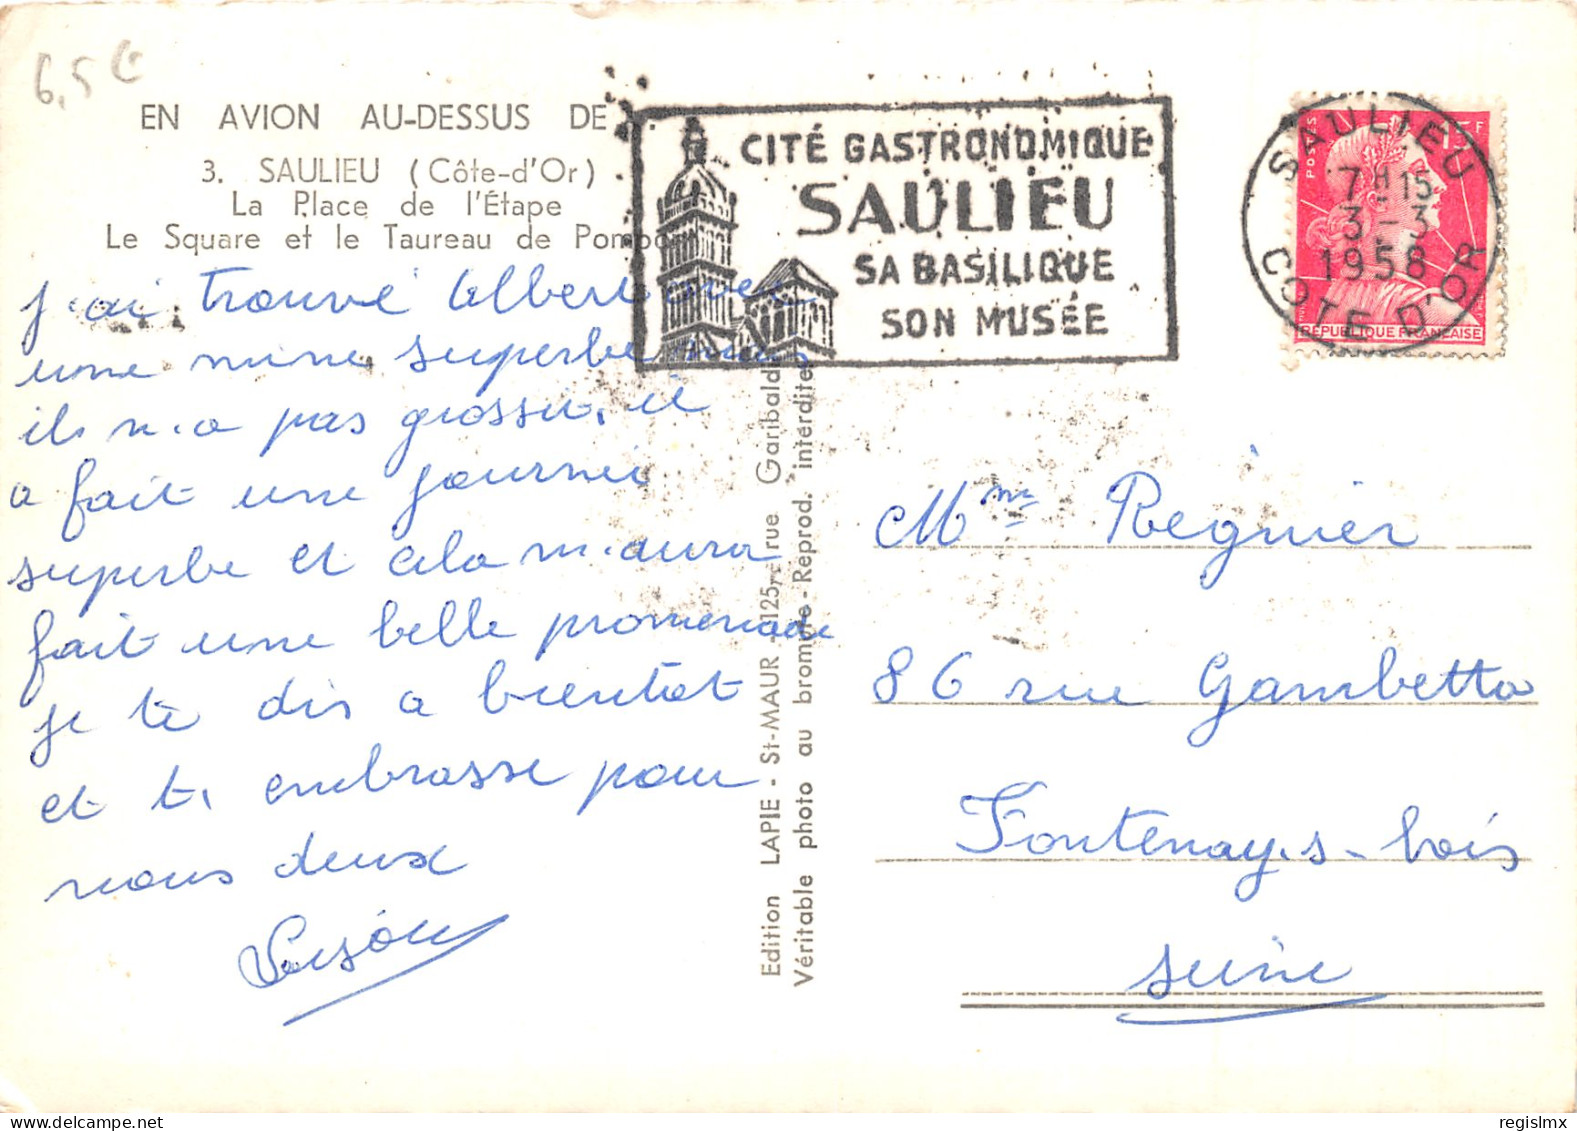 6,5 €
EN AVION AU-DESSUS DE
3. SAULIEU (Côte-d'Or)
La Place de l'Étape
Le Square et le Taureau de Pompon
CITÉ GASTRONOMIQUE
SAULIEU
SA BASILIQUE
SON MUSÉE
SAULIEU
7H15
3-3
1958
COTE D'OR
POSTES
15F
RÉPUBLIQUE FRANÇAISE
j'ai trouvé Albert avec
une mine superbe mais
ils n'a pas grossi, il
a fait une journée
superbe et cela m'aura
fait une belle promenade
je te dis a bientot
et t, embrasse pour
nous deux
Edition LAPIE - St-MAUR - 125, rue Garibaldi
Véritable photo au bromure - Reprod. interdite
Mme Régnier
86 rue Gambetta
Fontenay-s-bois
Seine
regislmx